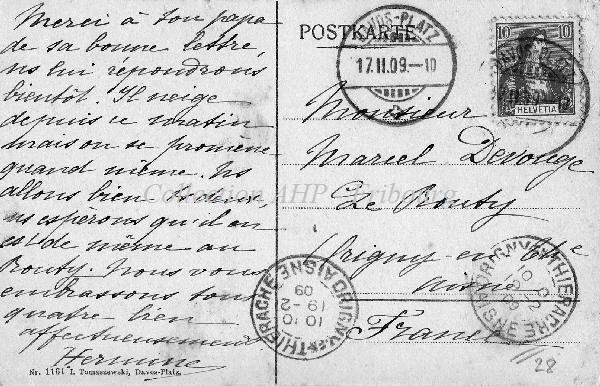 Merci à ton papa
de sa bonne lettre,
ns lui répondrons
bientôt. Il neige
depuis ce matin
mais on se promène
quand même. Ns
allons bien
ns esperons qu'il en
est de même au
Routy. Nous vous
embrassons tous
quatre bien
affectueusement
Hermine
Nr. 1161 I. Tomaszewski, Davos-Platz.
POSTKARTE
DAVOS-PLATZ
17.II.09.–10
10 10
HELVETIA
Monsieur
Marcel Devouge
Le Routy
Origny en Thche
Aisne
France
ORIGNY-EN-THIERACHE AISNE
10 10
19-2
09
ORIGNY-EN-THIERACHE
Collection AHP - Fribourg
11/28